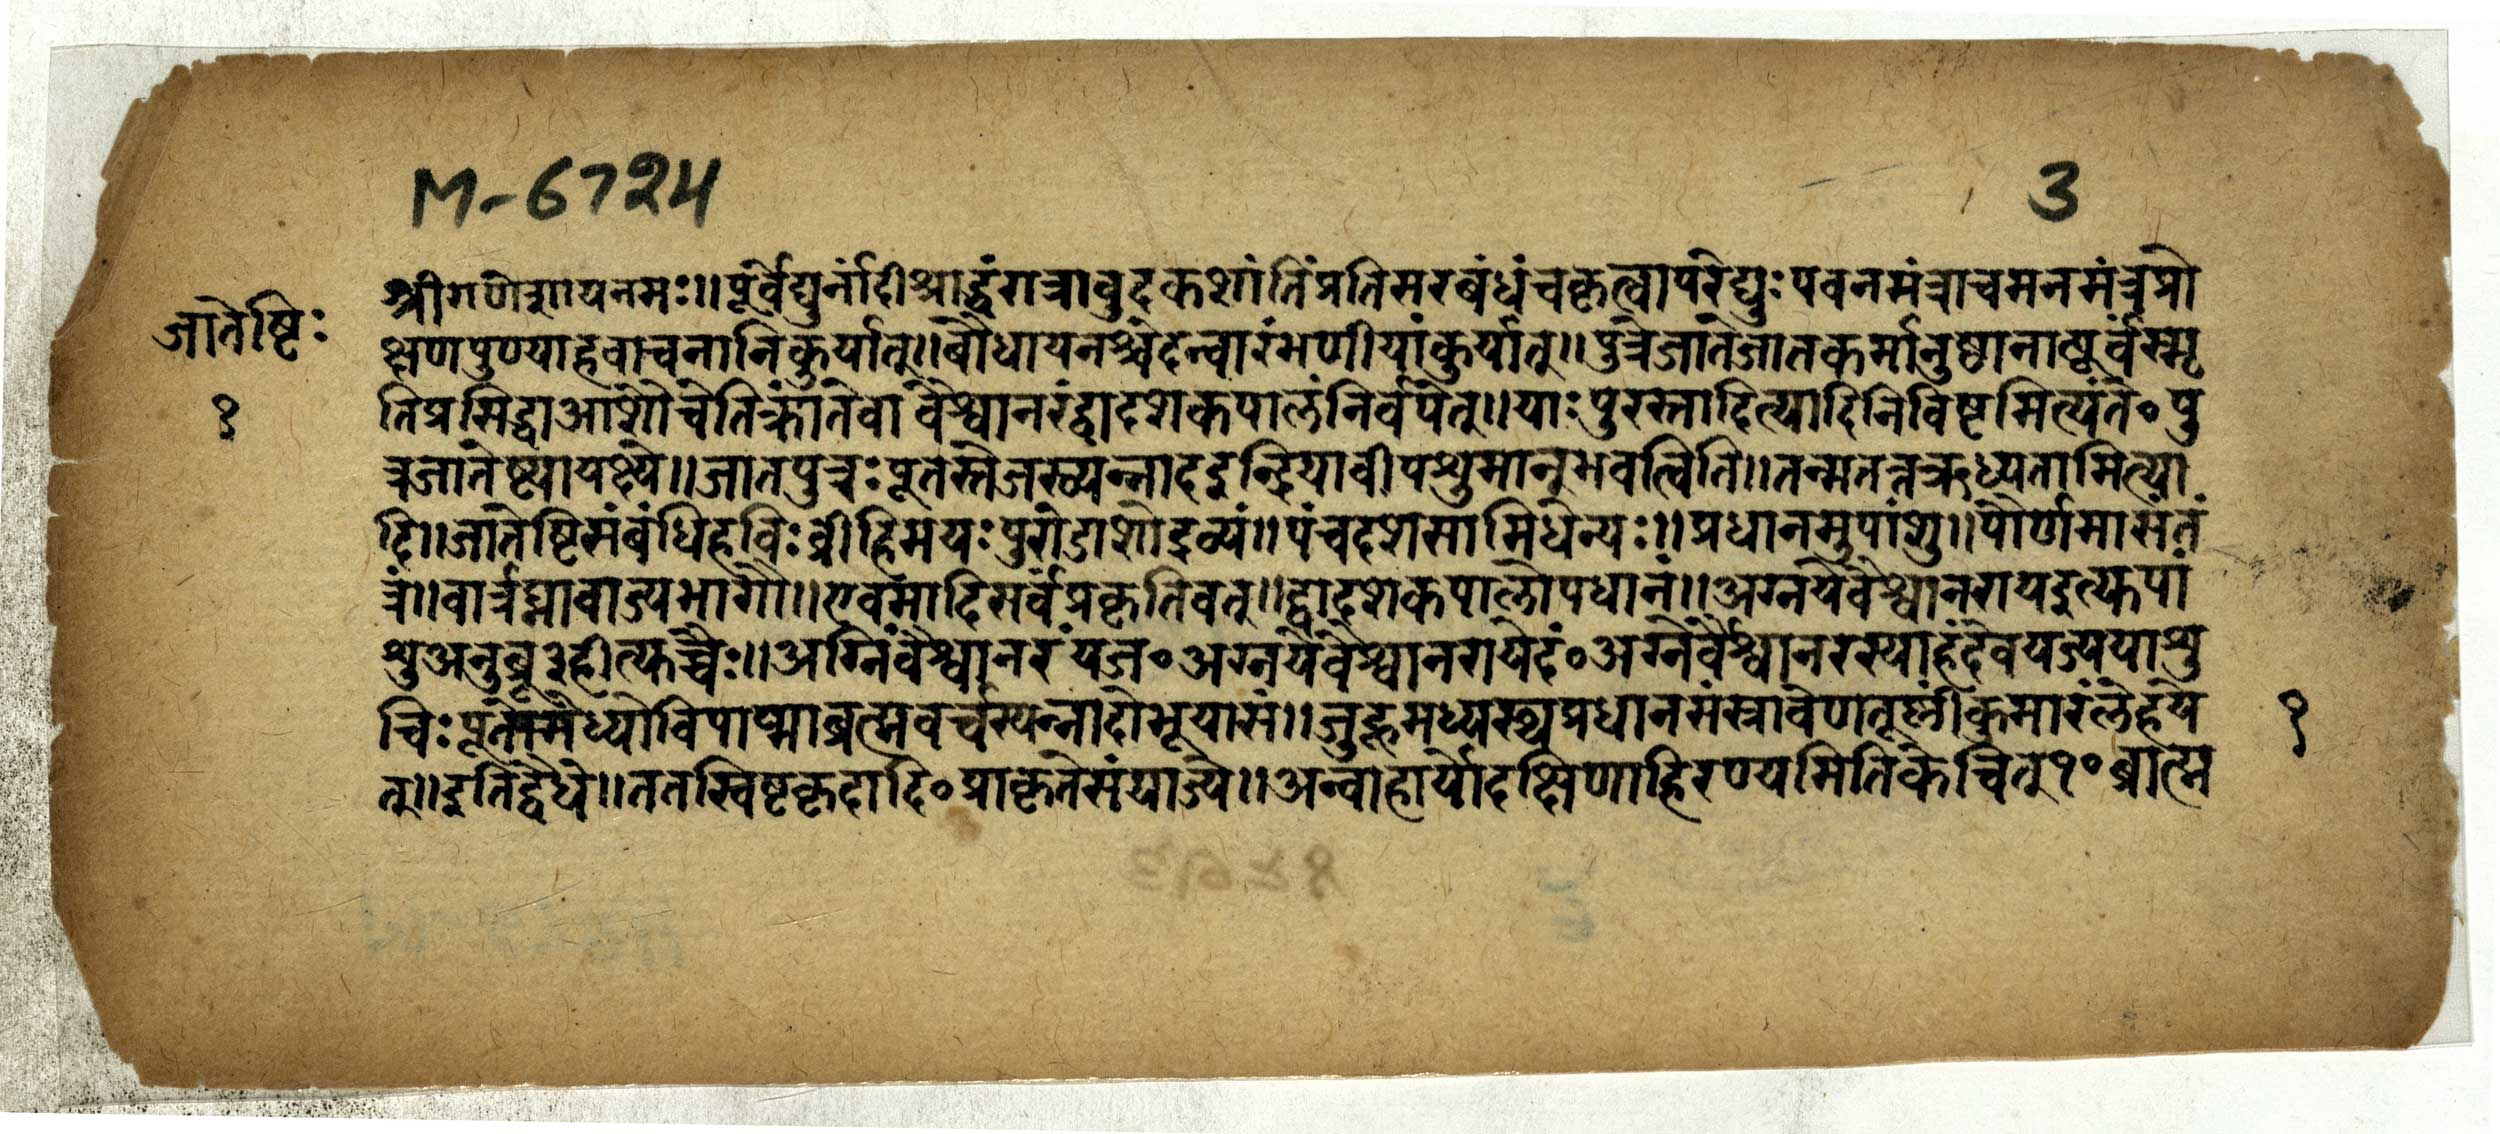 M-6724
3
श्रीगणेशायनमः॥पूर्वेद्युर्नांदीश्राद्धंरात्रावुदकशांतिंप्रतिसरबंधंचकृत्वापरेद्युःपवनमंत्राचमनमंत्रप्रो
जातेष्टिः
क्षणपुण्याहवाचनानिकुर्यात्॥बौधायनश्चेदन्वारंभणीयांकुर्यात्॥पुत्रेजातेजातकर्मानुष्ठानात्पूर्वंस्मृ
१
तिप्रसिद्धाआशौचेतिक्रांतेवावैश्वानरंद्वादशकपालंनिर्वपेत्॥याःपुरस्तादित्यादिनिविष्टमित्यंते०पु
त्रजातेष्ट्यायक्ष्ये॥जातपुत्रःपूतस्तेजस्व्यन्नादइन्द्रियावीपशुमान्भवत्विति॥तन्मतन्नऋध्यतामित्या
दि॥जातेष्टिसंबंधिहविःव्रीहिमयःपुरोडाशोद्रव्यं॥पंचदशसामिधेन्यः॥प्रधानमुपांशु॥पौर्णमासंतं
त्रं॥वार्त्रघ्नावाज्यभागौ॥एवमादिसर्वंप्रकृतिवत्॥द्वादशकपालोपधानं॥अग्नयेवैश्वानरायइत्युपां
शुअनुब्रू३हीत्युच्चैः॥अग्निंवैश्वानरंयज०अग्नयेवैश्वानरायेदं०अग्नेर्वैश्वानरस्याहंदेवयज्ययाशु
चिःपूतोमेध्योविपाप्माब्रह्मवर्चस्यन्नादोभूयासं॥जुहूमध्यस्थप्रधानसंस्रावेणतूष्णींकुमारंलेहये
१
त्॥इतिद्वैधे॥ततस्विष्टकृदादि०प्राकृतेसंयाज्ये॥अन्वाहार्योदक्षिणाहिरण्यमितिकेचित्१०ब्राह्म